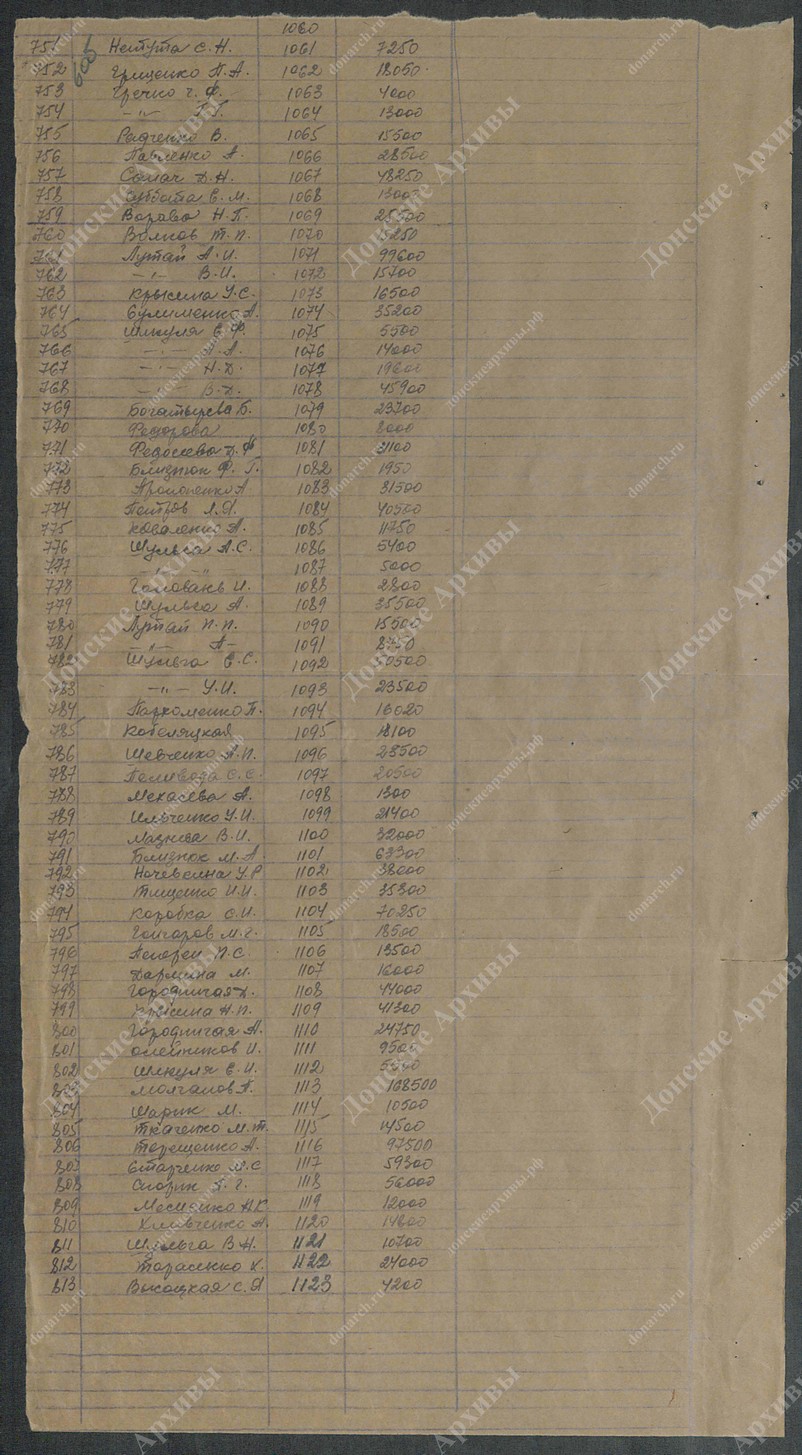 1060
751 Нетута С. Н. 1061 7250
752 Грищенко П. А. 1062 18050
753 Гречко Г. Ф. 1063 4000
754 -"- Г. 1064 13000
755 Радченко В. 1065 15500
756 Павленко А. 1066 28500
757 Сомач Д. Н. 1067 48250
758 С. М. 1068 1300
759 Н. П. 1069 25500
760 Волков Т. П. 1070 15250
761 Лутай А. И. 1071 99600
762 -"- В. И. 1072 15700
763 Крысина У. С. 1073 16500
764 Сулименко А. 1074 35200
765 Шкуля Е. Ф. 1075 5500
766 -"- А. А. 1076 14000
767 -"- Н. Д. 1077 19600
768 -"- В. Д. 1078 45900
769 Богатырева Б. 1079 23700
770 Федорова 1080 8000
771 Федосеева Д. Ф. 1081 3100
772 Близнюк Ф. Г. 1082 1950
773 А 1083 31500
774 Петров Л. Я. 1084 40500
775 Коваленко А. 1085 11750
776 Шульга А. С. 1086 5400
777 -"- -"- 1087 5000
778 Головань И. 1088 2800
779 Шульга А. 1089 35500
780 Лутай П. П. 1090 15500
781 -"- А- 1091 8750
782 Шульга Е. С. 1092 50500
783 -"- У. И. 1093 23500
784 Пархоменко П. 1094 16020
785 Кобеляцкая 1095 18100
786 Шевченко А. П. 1096 28500
787 Поливода С. С. 1097 20500
788 А. 1098 1300
789 Ильченко У. И. 1099 21400
790 Мазнева В. И. 1100 32000
791 Близнюк М. А. 1101 63300
792 У. Р 1102 38000
793 Тищенко И. И. 1103 35300
794 Коробка С. И. 1104 70250
795 Гончаров М. Г. 1105 18500
796 П. С. 1106 13500
797 М. 1107 16000
798 Городничая Д. 1108 44000
799 Крысина Н. П. 1109 41300
800 Городничая А. 1110 24750
801 Олейников И. 1111 9500
802 Шкуля Е. И. 1112 5500
803 Молчанов П. 1113 168500
804 Шарик М. 1114 10500
805 Ткаченко М. Т. 1115 14500
806 Терещенко А. 1116 97500
807 Старченко М. С 1117 59300
808 Скорик А. Г. 1118 56000
809 Н. К 1119 12000
810 А. 1120 14600
811 Шульга В. Н. 1121 10700
812 Тарасенко К. 1122 24000
813 Высоцкая С. Я 1123 4200
Донские Архивы
donarch.ru
донскиеархивы.рф